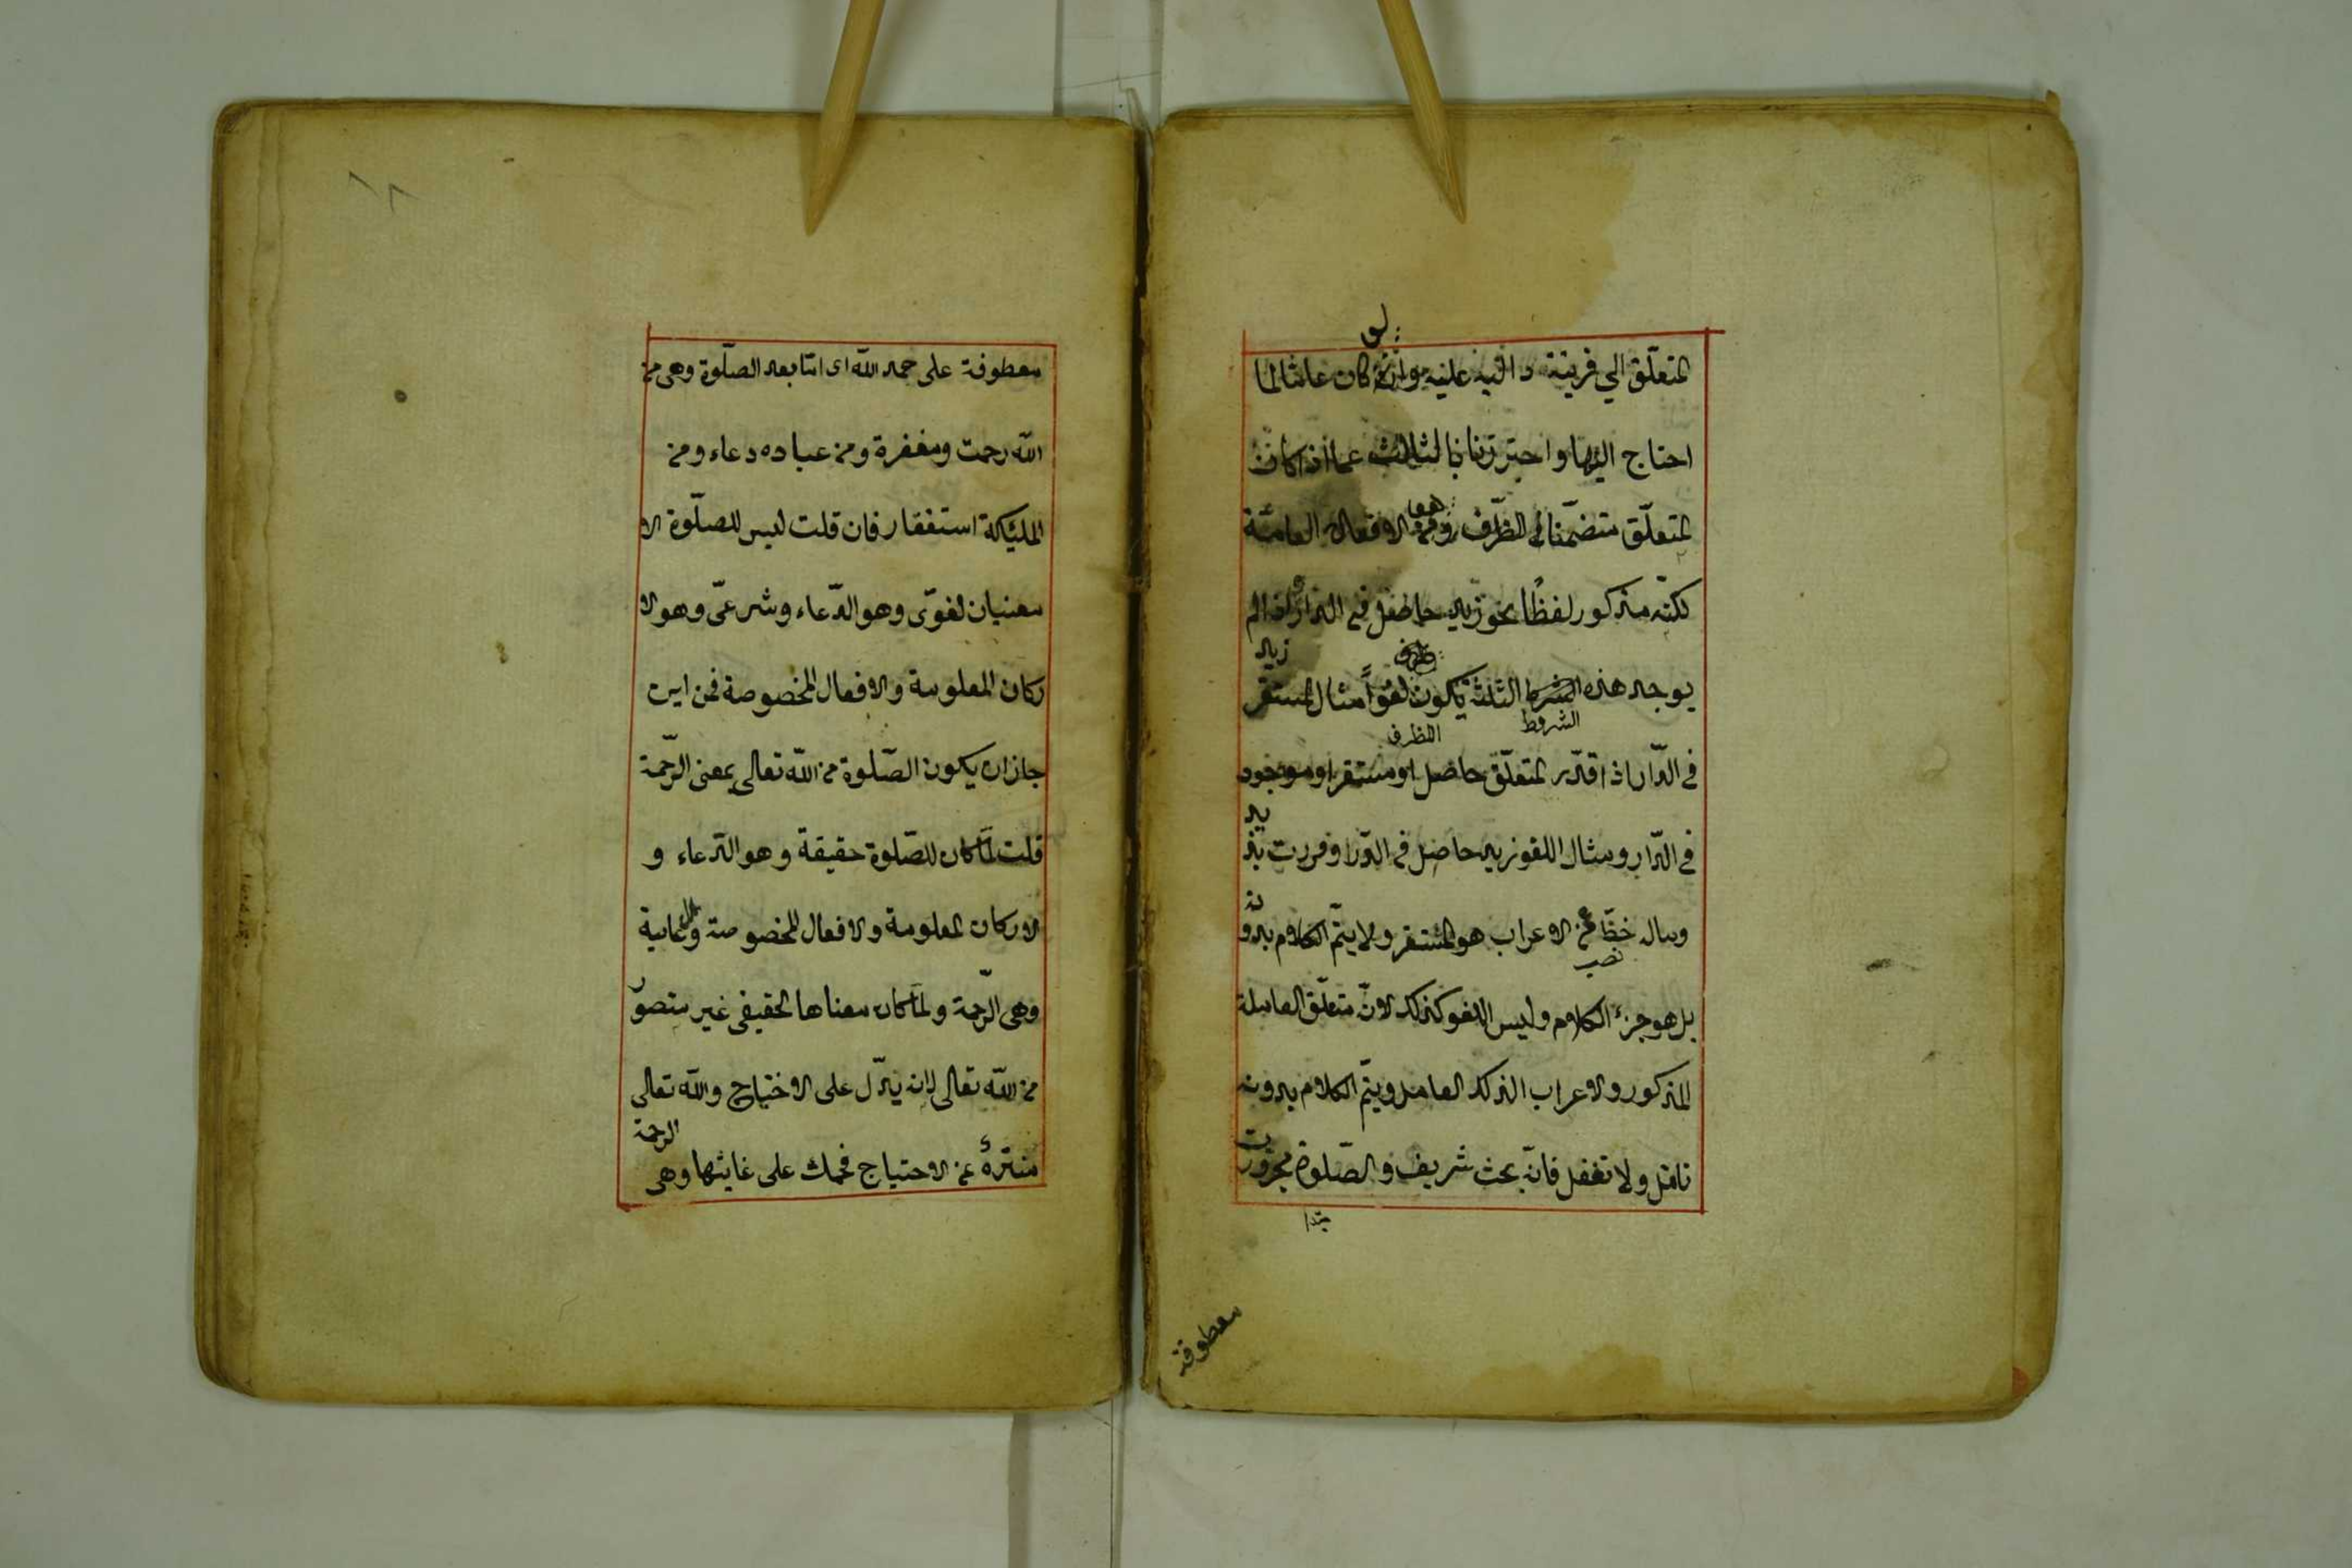 لو
المتعلّق الي قرينة دالّية عليه وانّه كان عامّا لما
احتاج اليها واحترزنا بالثلاث عما اذا كان
المتعلّق متضمّنا في الظرف وهو من الافعال العامّة
لكنّه مذكور لفظًا نحو زيد حاصل في الدار واذا لم
يوجد هذه الشرط الثلثة يكون لغواً مثال المستقر زيد
الشروط
الظرف
في الدّار اذا قدّر المتعلّق حاصل او مستقر او موجود
في الدّار ومثال اللغو زيد حاصل في الدّار او مررت بزيد
وماله حظّا من الاعراب هو المستقر ولا يتمّ الكلام بدونه
نصب
بل هو جزء الكلام وليس اللغو كذلك لانّ متعلّق العاملة
المذكور والاعراب لذلك العامل ويتمّ الكلام بدونه
تامّل ولا تغفل فانّه بحث شريف والصّلوة مجرورت
مبتدا
معطوفة
معطوفة على حمد اللّه اى امّا بعد الصّلوة وهى من
اللّه رحمت ومغفرة ومن عباده دعاء ومن
الملئكة استغفار فان قلت ليس للصلّوة الا
معنيان لغوّى وهو الدّعاء وشرعىّ وهو الا
ركان المعلومة والافعال المخصوصة فمن اين
جاز ان يكون الصّلوة من اللّه تعالى بمعنى الرّحمة
قلت لمّا كان للصّلوة حقيقة وهو الدّعاء و
الاركان المعلومة والافعال المخصوصة والغاية
وهى الرّحمة ولمّا كان معناها الحقيقى غير متصوّر
من اللّه تعالى لانه يدّل على الاحتياج واللّه تعالى
منزّهٌ عن الاحتياج فحملت على غايتها وهى الرحمة